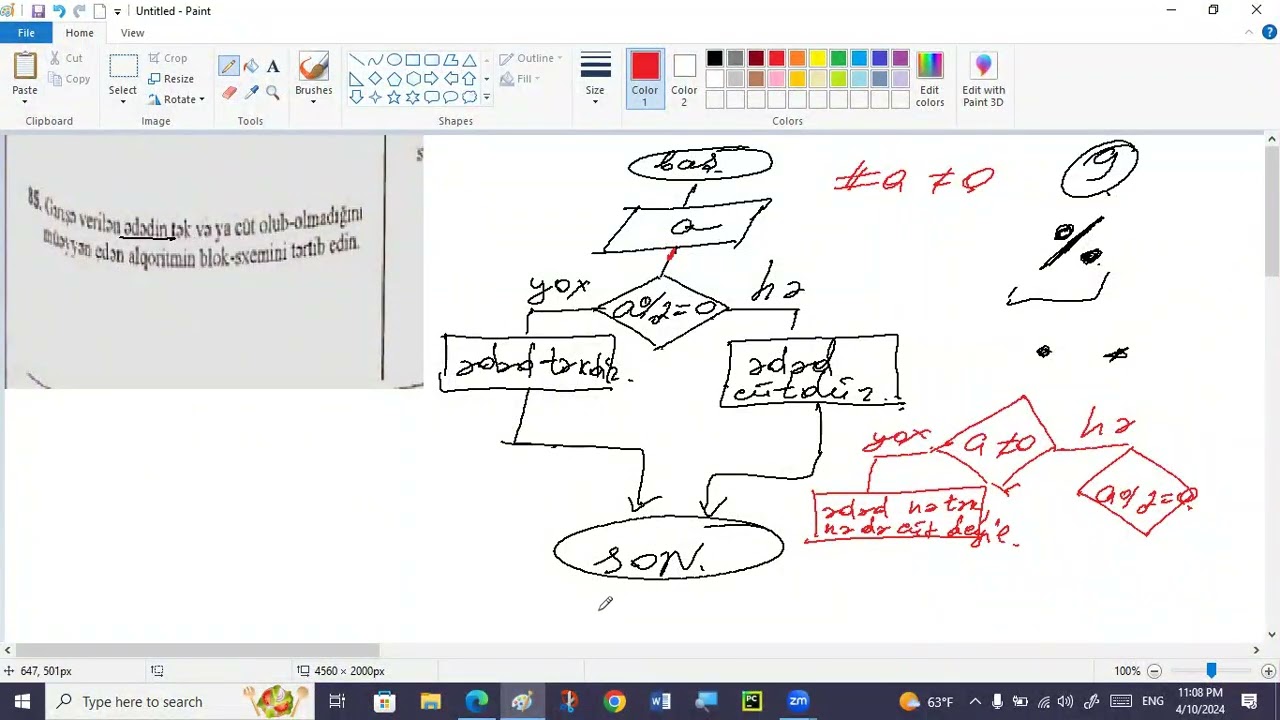 Untitled - Paint
File
Home
View
Paste
Cut
Copy
Clipboard
Select
Crop
Resize
Rotate
Image
Tools
Brushes
Shapes
Outline
Fill
Size
Color 1
Color 2
Edit colors
Edit with Paint 3D
Colors
85. Girişə verilən ədədin tək və ya cüt olub-olmadığını
müəyyən edən alqoritmin blok-sxemini tərtib edin.
baş.
a
#a ≠ 0
9
%
yox
a%2=0
hə
ədəd təkdir.
ədəd
cütdür.
yox
a ≠ 0
hə
ədəd nə tək,
nə də cüt deyil.
a%2=0
SON.
647, 501px
4560 × 2000px
100%
Type here to search
63°F
ENG
11:08 PM
4/10/2024